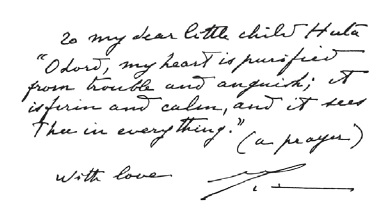 To my dear little child Huta
"O Lord, my heart is purified
from trouble and anguish; it
is firm and calm, and it sees
Thee in everything."
(a prayer)
With love